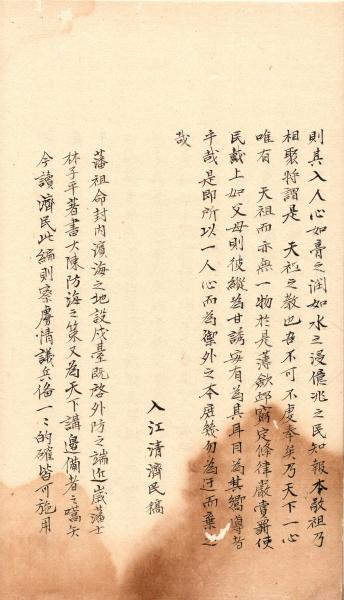 則其入人心如膏之潤如水之浸億兆之民知報本敬祖乃
相聚將謂是　天祖之敎也吾不可不虔奉矣乃天下一心
唯有　天祖而亦無一物於是薄歛邺窮定條律嚴賞罸使
民戴上如父母則彼縱為甘誘寧有為其耳目為其嚮導者
乎哉是卽所以一人心而為禦外之本庶幾勿為迂而棄之
哉
入江清濟民稿
藩祖命封內濱海之地設戍臺旣啓外防之端近歲藩士
林子平著書大陳防海之策又為天下講邊備者之嚆矢
今讀濟民此編則察虜情議兵備一〻的確皆可施用